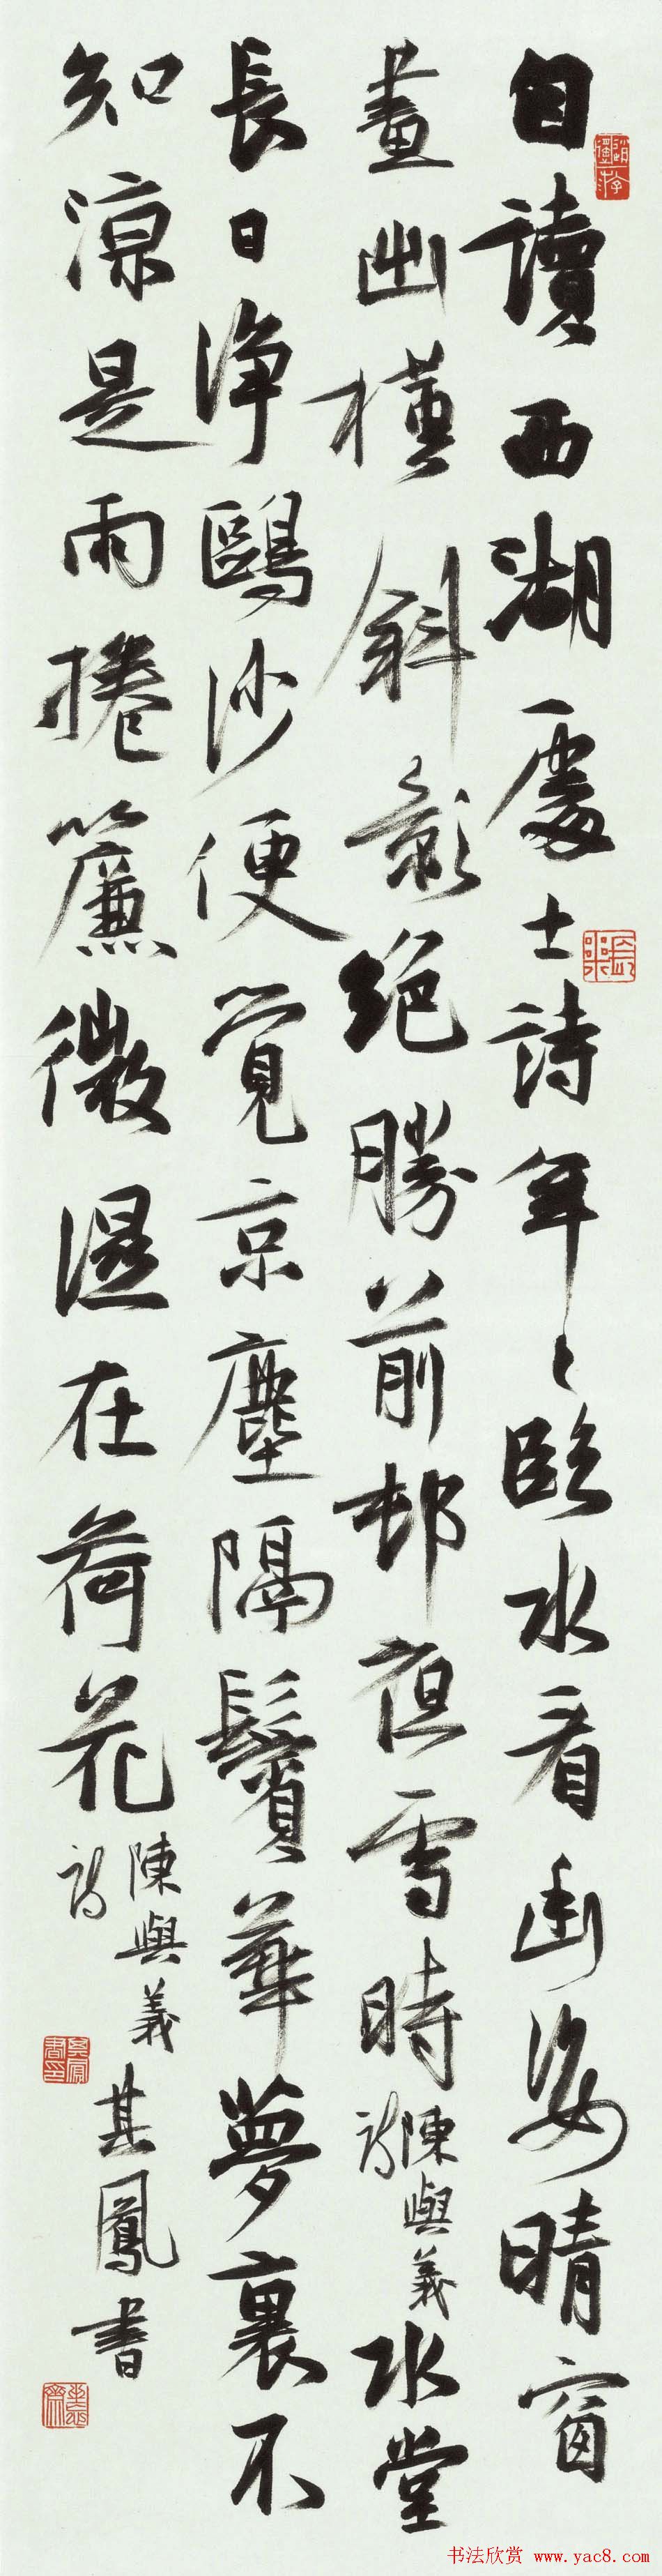 自讀西湖處士詩年〻臨水看幽姿晴窗
畫出橫斜影絕勝前邨夜雪時陳與義詩水堂
長日淨鷗沙便覺京塵隔鬢華夢裏不
知涼是雨捲簾微濕在荷花陳與義詩
其鳳書
书法欣赏 www.yac8.com